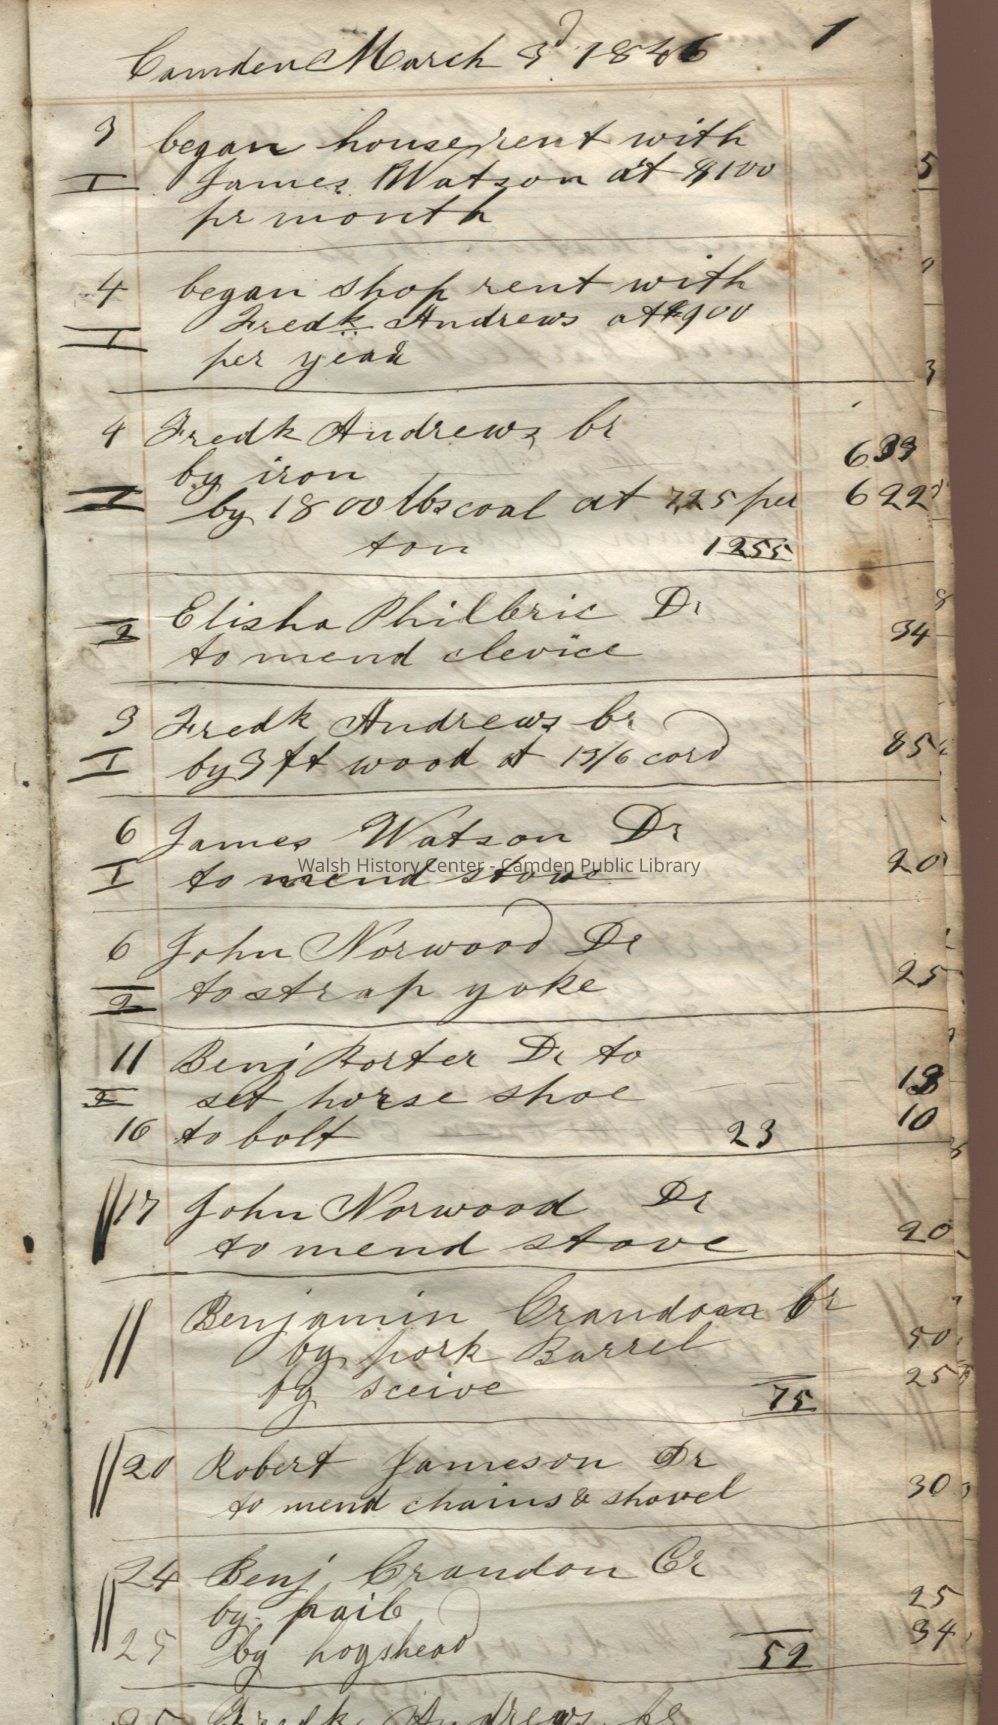 Camden March 3d 1846 1
3 began house rent with
I James Watson at $100
pr month
4 began shop rent with
I Fredk Andrews at $900
per year
4 Fredk Andrews Cr
by iron 633
I by 1800 lbs coal at 7,25 per 622
ton 1255
Elisha Philbric Dr
2 to mend clevice 34
3 Fredk Andrews Cr
I by 3 ft wood at 13/6 cord 85
6 James Watson Dr
I to mend stove 20
Walsh History Center - Camden Public Library
6 John Norwood Dr
2 to strap yoke 25
11 Benj Porter Dr to
2 set horse shoe 13
16 to bolt 23 10
17 John Norwood Dr
to mend stove 20
Benjamin Crandon Cr
by pork Barrel 50
by sceive 75 25
20 Robert Jameson Dr
to mend chains & shovel 30
24 Benj Crandon Cr
by pail 25
25 by hogshead 59 34
25 Fredk Andrews Cr